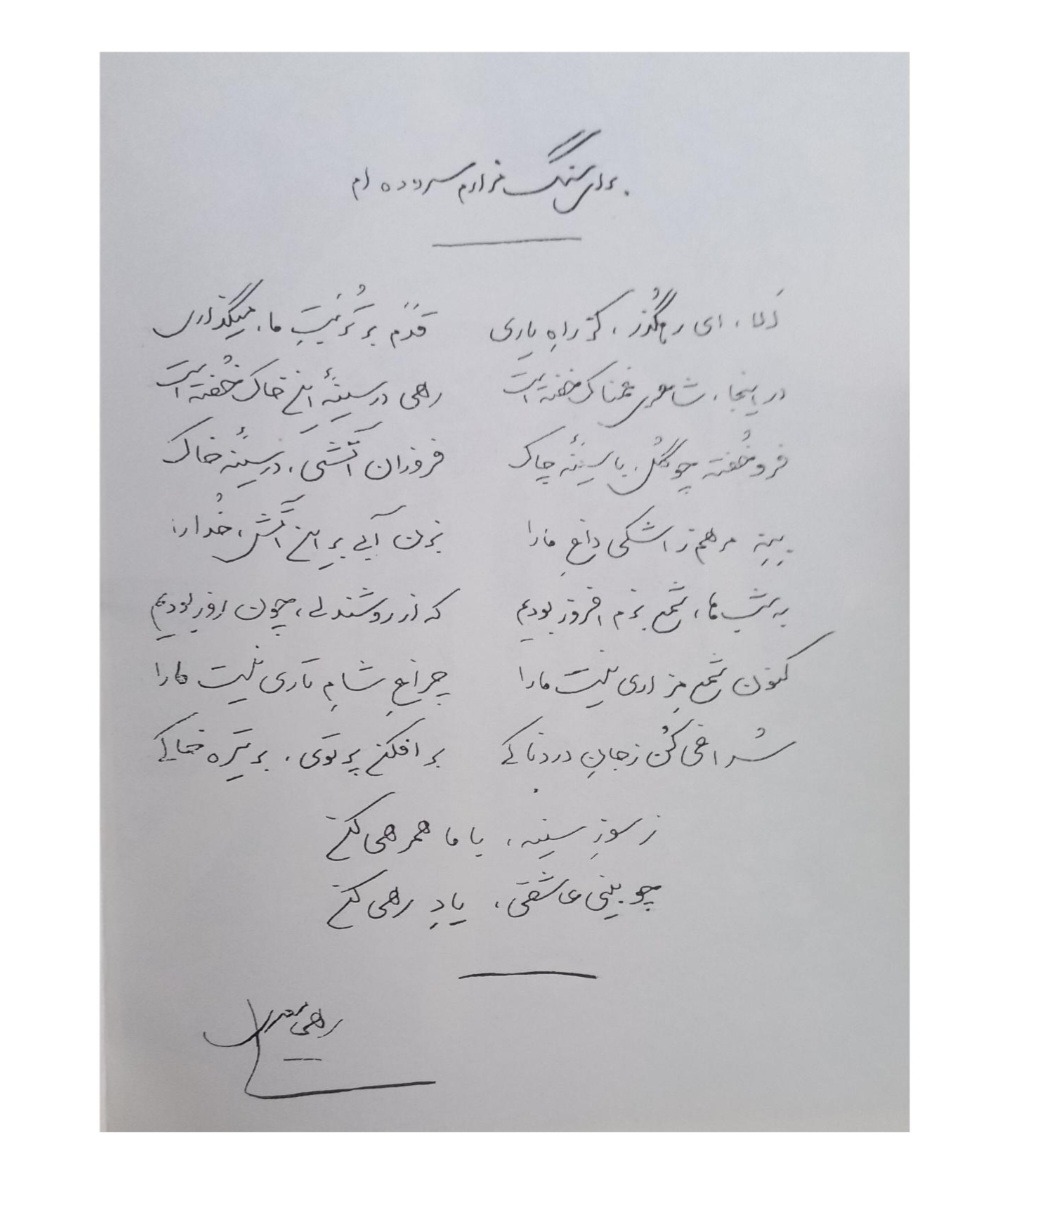 برای سنگ مزارم سروده ام
الا، ای رهگذر، کز راه یاری قدم بر تربت ما، میگذاری
در اینجا، شاعری غمناک خفته است رهی در سینهٔ این خاک خفته است
فرو خفته چو گل، با سینهٔ چاک فروزان آتشی، در سینهٔ خاک
بنه مرهم ز اشکی داغ ما را بزن آبی بر این آتش، خدا را
به شب ها، شمع بزم افروز بودیم که از روشندلی، چون روز بودیم
کنون شمع مزاری نیست ما را چراغ شام تاری نیست ما را
سُراغی کُن ز جانِ دردناکی بر افکن پرتوی، بر تیره خاکی
ز سوزِ سینه، با ما همرهی کن
چو بینی عاشقی، یادِ رهی کن
رهی معیری